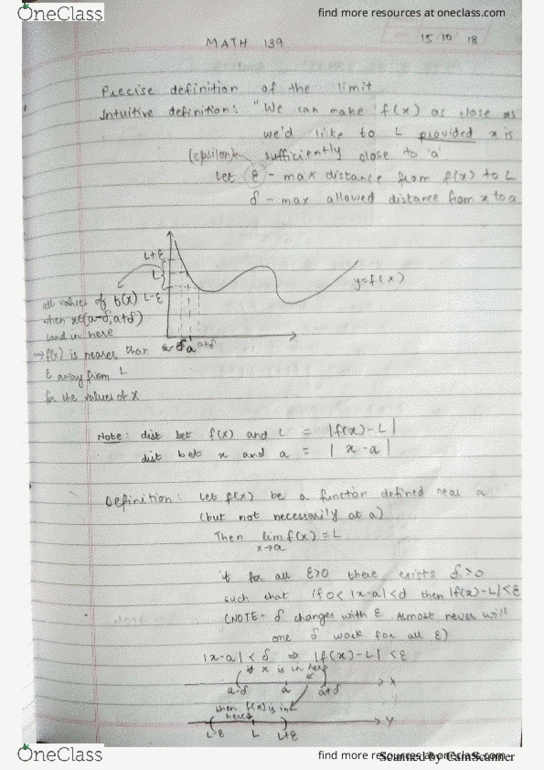 OneClass
find more resources at oneclass.com
15 10 18
MATH 139
Precise definition of the limit
Intuitive definition: "We can make f(x) as close as
we'd like to L provided x is
sufficiently close to 'a'
(epsilon)
Let ε - max distance from f(x) to L
δ - max allowed distance from x to a
L+ε
L
L-ε
y=f(x)
all values of f(x)
when xε(a-δ,a+δ)
land in here
⇒ f(x) is nearer than
ε away from L
for the values of x
a-δ a a+δ
Note: dist bet f(x) and L = |f(x)-L|
dist bet x and a = | x-a |
Definition: Let f(x) be a functor defined near a
(but not necessarily at a)
Then lim f(x) = L
x→a
if for all ε>0 there exists δ>0
such that if 0<|x-a|<d then |f(x)-L|<ε
(NOTE- δ changes with ε. Almost never will
one δ work for all ε)
|x-a| < δ ⇒ |f(x)-L| < ε
if x is in here
a-δ a a+δ X
then f(x) is in
here
L-ε L L+ε Y
OneClass
find more resources at oneclass.com
Scanned by CamScanner